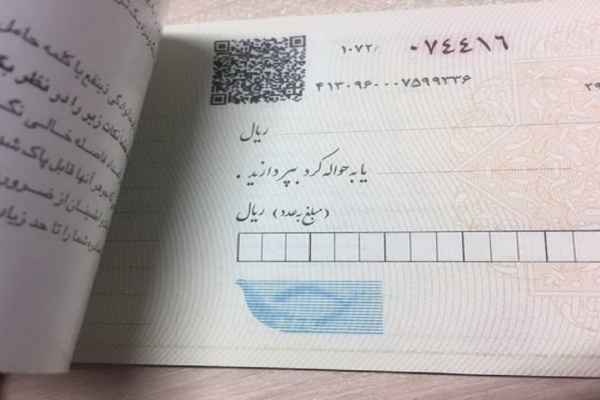 ۱۰۷۲/ ۰۷٤٤۱٦
۴۱۳۰۹۶۰۰۰۷۵۹۹۲۲۶
ریال
یا به حواله کرد بپردازید .
(مبلغ به عدد) ریال
ذینفع یا کلمه حامل
نکات زیر را در نظر
فاصله خالی
آنها قابل پاک
از ضرور
شما را تا حد زیاد